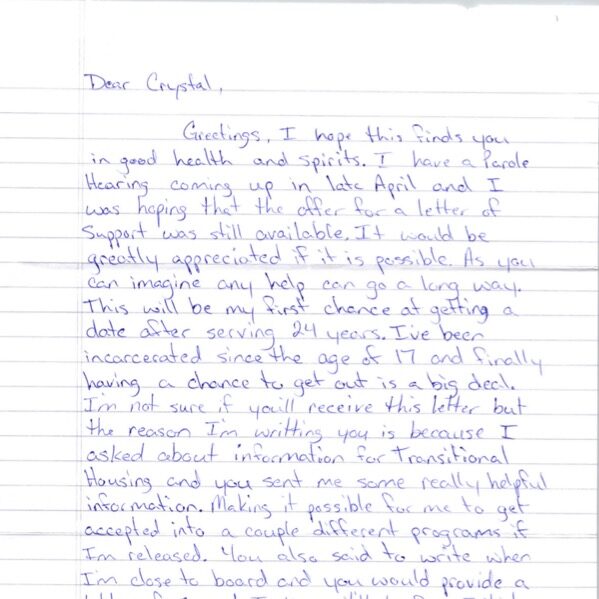 Dear Crystal,
Greetings, I hope this finds you
in good health and spirits. I have a Parole
Hearing coming up in late April and I
was hoping that the offer for a letter of
Support was still available. It would be
greatly appreciated if it is possible. As you
can imagine any help can go a long way.
This will be my first chance at getting a
date after serving 24 years. I've been
incarcerated since the age of 17 and finally
having a chance to get out is a big deal.
I'm not sure if you'll receive this letter but
the reason I'm writting you is because I
asked about information for Transitional
Housing and you sent me some really helpful
information. Making it possible for me to get
accepted into a couple different programs if
I'm released. You also said to write when
I'm close to board and you would provide a